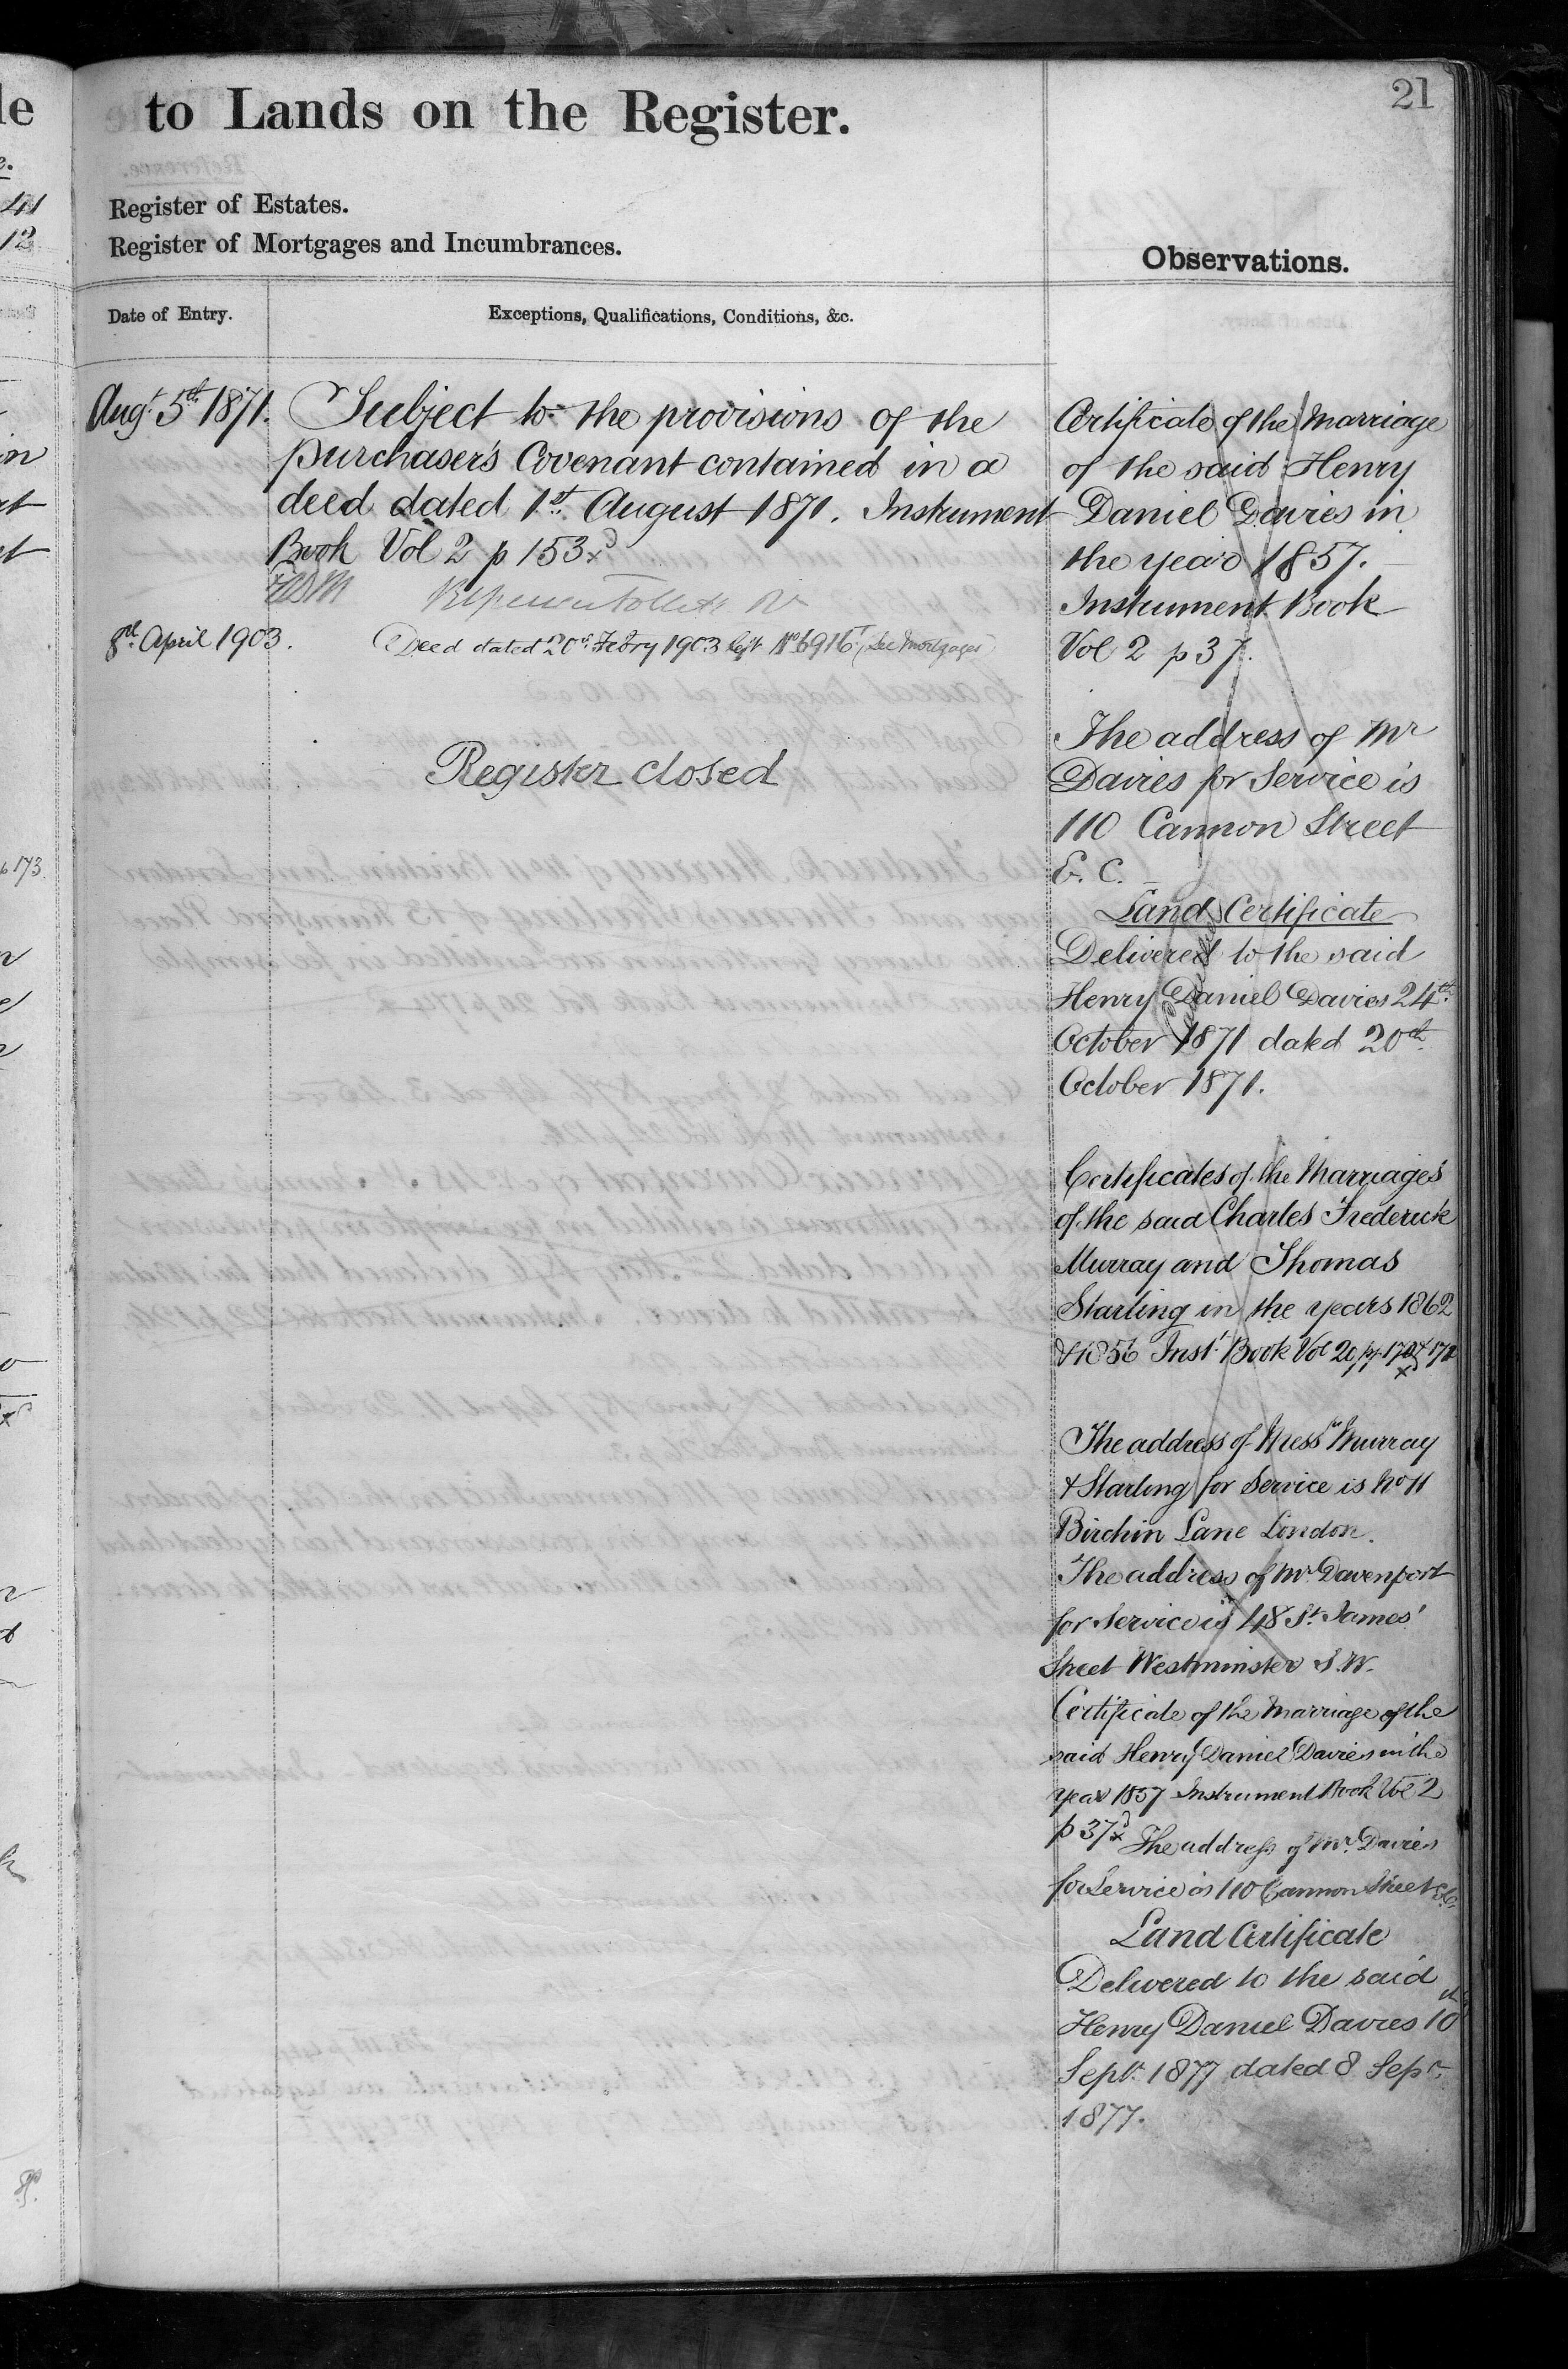 21
to Lands on the Register.
Register of Estates.
Register of Mortgages and Incumbrances.
Observations.
Date of Entry.
Exceptions, Qualifications, Conditions, &c.
Augt. 5th 1871.
Subject to the provisions of the
purchaser's Covenant contained in a
deed dated 1st August 1871. Instrument
Book Vol 2 p 153
8th April 1903.
Deed dated 20th Febry 1903 left No 6916 (See Mortgages)
Register closed
Certificate of the Marriage
of the said Henry
Daniel Davies in
the year 1857.
Instrument Book
Vol 2 p 37.
The address of Mr
Davies for Service is
110 Cannon Street
E. C.
Land Certificate
Delivered to the said
Henry Daniel Davies 24th
October 1871 dated 20th
October 1871.
Certificates of the Marriages
of the said Charles Frederick
Murray and Thomas
Starling in the years 1862
& 1856 Inst Book Vol 20 pp
The address of Messrs Murray
& Starling for Service is No 11
Birchin Lane London.
The address of Mr Davenport
for Service is 48 St. James'
Street Westminster S.W.
Certificate of the Marriage of the
said Henry Daniel Davies in the
year 1857 Instrument Book Vol 2
p 37 The address of Mr. Davies
for Service is 110 Cannon Street E.C.
Land Certificate
Delivered to the said
Henry Daniel Davies 10th
Septr. 1877 dated 8 Sepr.
1877.